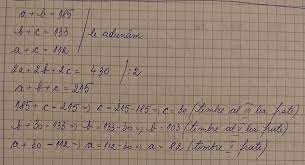 a + b = 185
b + c = 133
a + c = 112
le adunăm
2a + 2b + 2c = 430 | :2
a + b + c = 215
185 + c = 215 → c = 215 - 185 → c = 30 (timbre al III lea frate)
b + 30 = 133 → b = 133 - 30 → b = 103 (timbre al II lea frate)
a + 30 = 112 → a = 112 - 30 → a = 82 (timbre I frate)